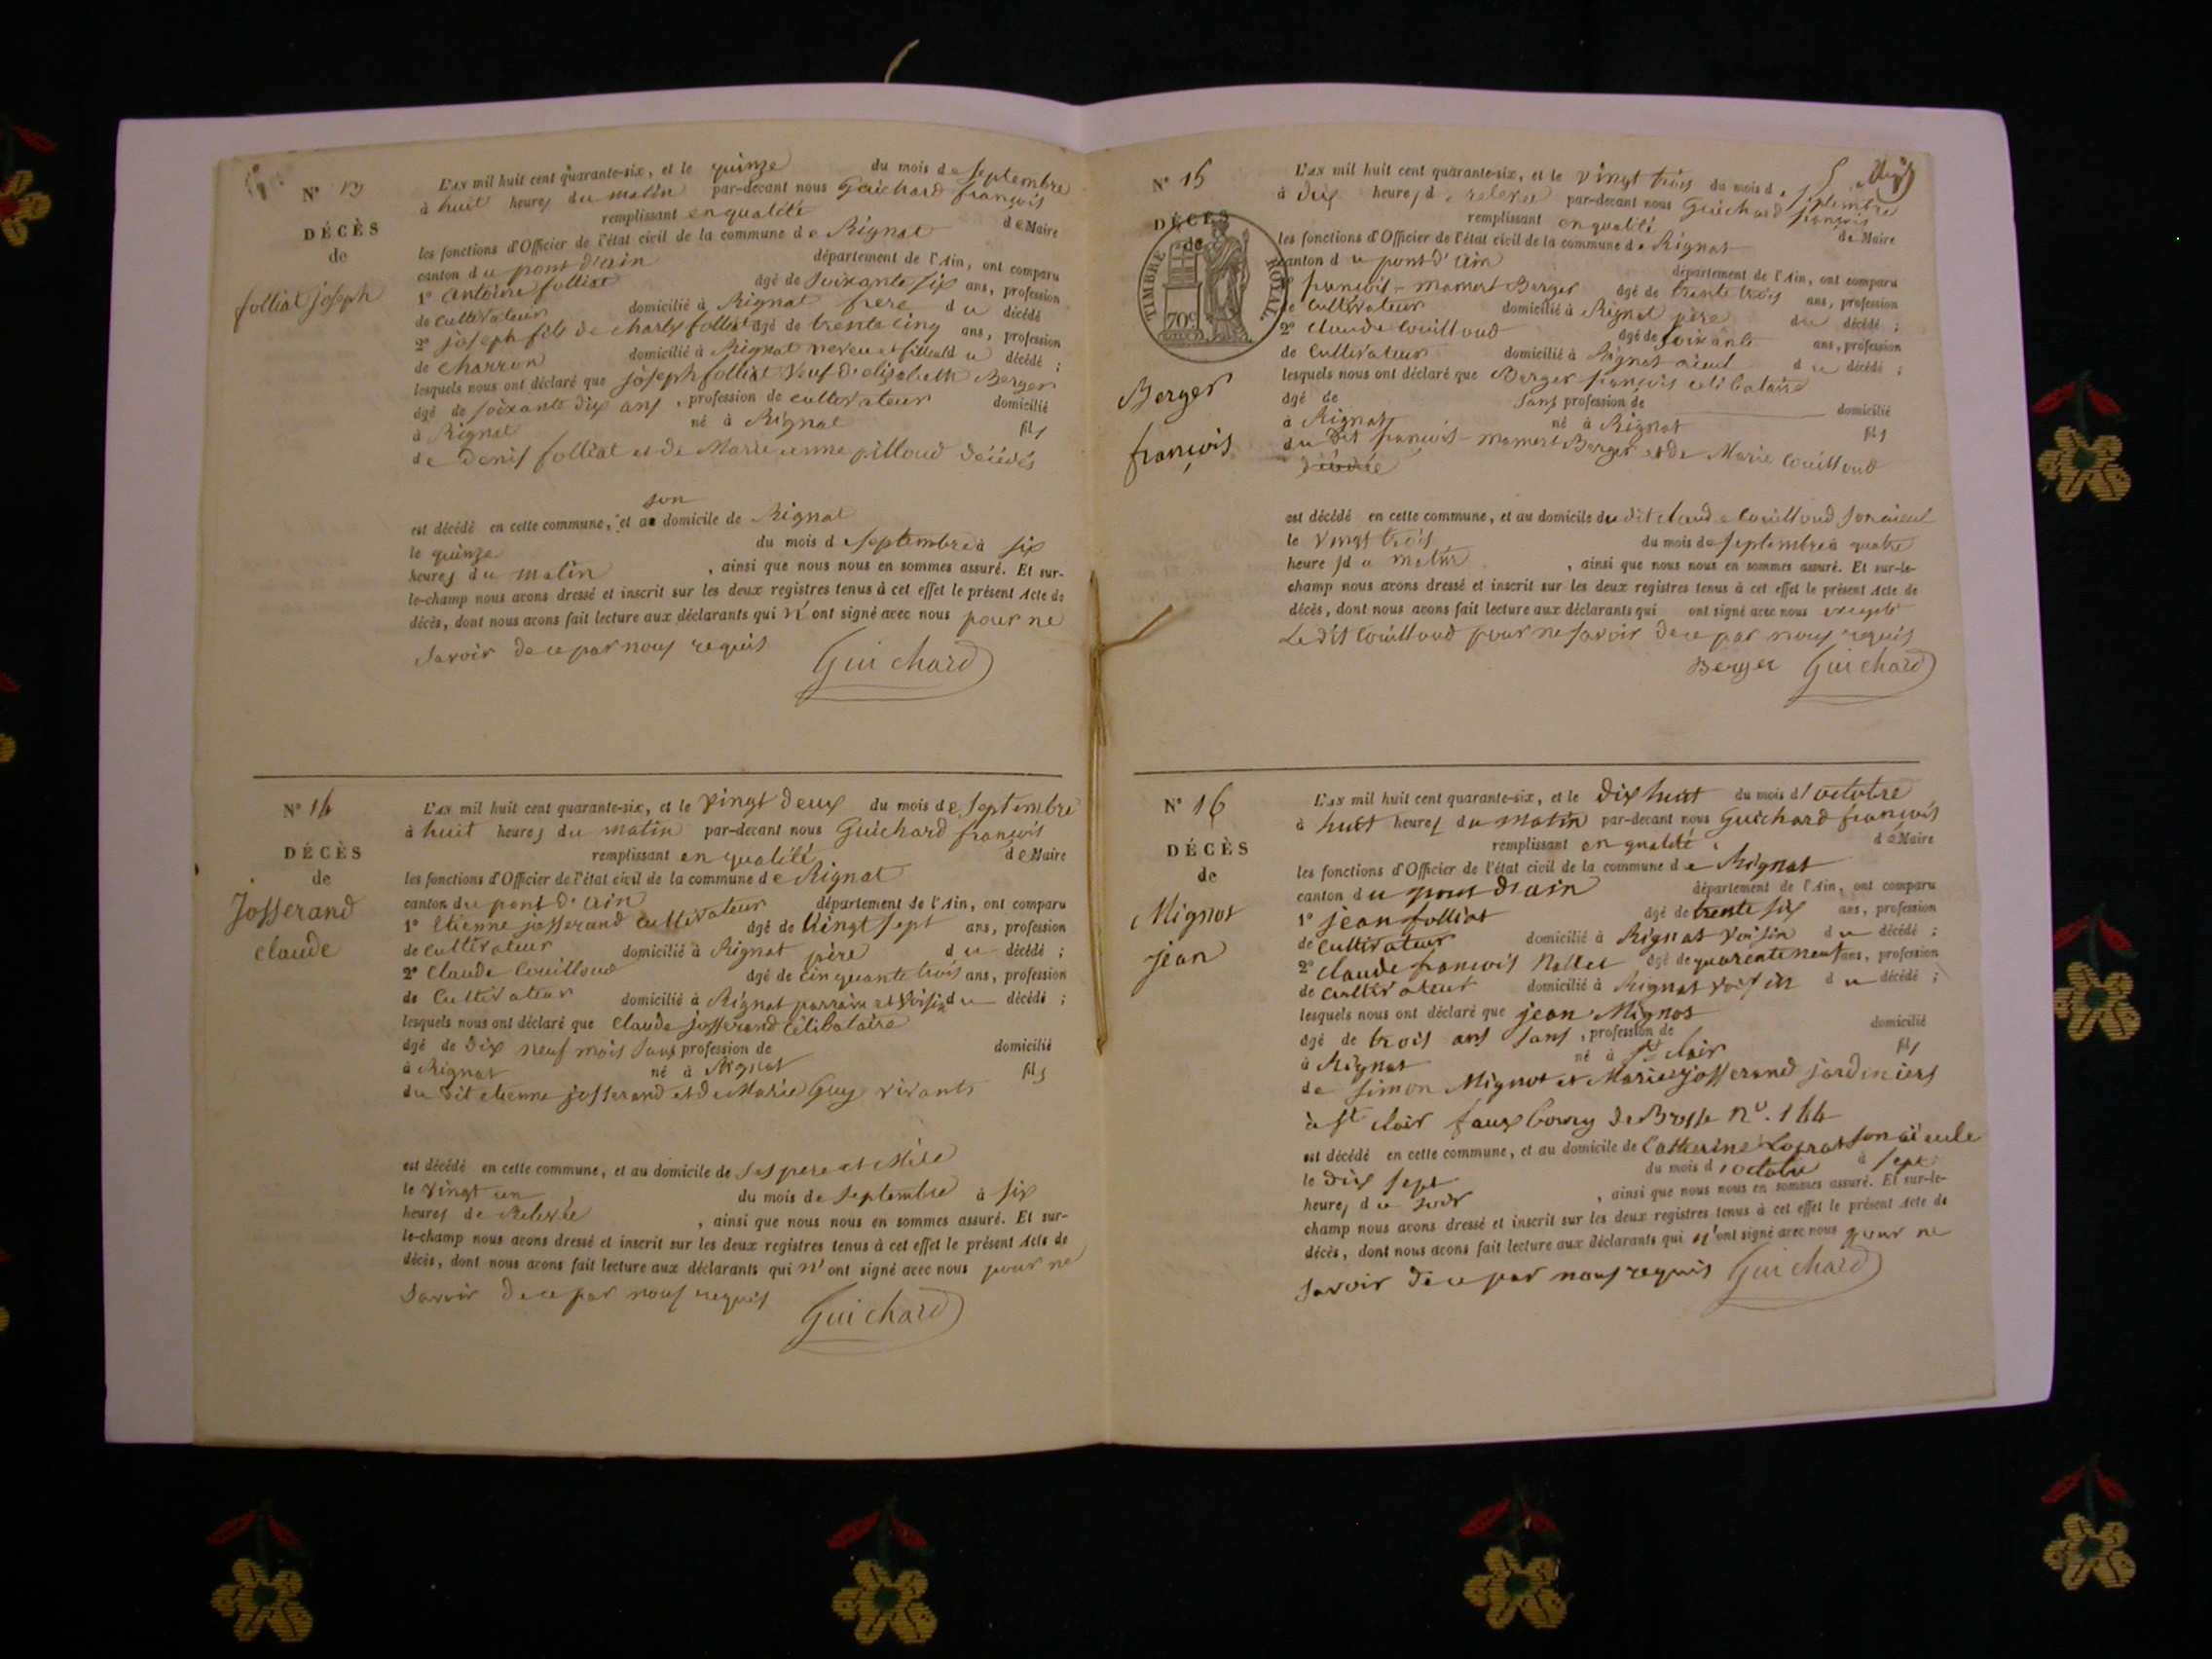 N° 13
DÉCÈS
de
folliat joseph
L'an mil huit cent quarante-six, et le quinze du mois de septembre
à huit heures du matin par-devant nous Guichard françois
remplissant en qualité de Maire
les fonctions d'Officier de l'état civil de la commune de Rignat
canton du pont d'ain département de l'Ain, ont comparu
1° antoine folliat âgé de soixante six ans, profession
de cultivateur domicilié à Rignat frere du décédé
2° joseph fils de charles folliat âgé de trente cinq ans, profession
de charron domicilié à Rignat neveu et filleul du décédé ;
lesquels nous ont déclaré que joseph folliat veuf d'elizabeth Berger
âgé de soixante dix ans, profession de cultivateur domicilié
à Rignat né à Rignat fils
de denis folliat et de Marie anne pilloud décédés
est décédé en cette commune, et au son domicile de Rignat
le quinze du mois de septembre à six
heures du matin, ainsi que nous nous en sommes assuré. Et sur-
le-champ nous avons dressé et inscrit sur les deux registres tenus à cet effet le présent Acte de
décès, dont nous avons fait lecture aux déclarants qui n'ont signé avec nous pour ne
savoir de ce par nous requis
Guichard
N° 14
DÉCÈS
de
Josserand
claude
L'an mil huit cent quarante-six, et le vingt deux du mois de septembre
à huit heures du matin par-devant nous Guichard françois
remplissant en qualité de Maire
les fonctions d'Officier de l'état civil de la commune de Rignat
canton du pont d'ain département de l'Ain, ont comparu
1° Etienne josserand cultivateur âgé de vingt sept ans, profession
de cultivateur domicilié à Rignat père du décédé ;
2° Claude Couilloud âgé de cinquante trois ans, profession
de cultivateur domicilié à Rignat parrain et voisin du décédé ;
lesquels nous ont déclaré que Claude josserand célibataire
âgé de dix neuf mois sans profession de domicilié
à Rignat né à Rignat fils
du dit etienne josserand et de Marie Guy vivants
est décédé en cette commune, et au domicile de ses pere et Mère
le vingt un du mois de septembre à six
heures de Relevée, ainsi que nous nous en sommes assuré. Et sur-
le-champ nous avons dressé et inscrit sur les deux registres tenus à cet effet le présent Acte de
décès, dont nous avons fait lecture aux déclarants qui n'ont signé avec nous pour ne
savoir de ce par nous requis
Guichard
N° 15
DÉCÈS
de
TIMBRE ROYAL.
70c
Berger
françois
L'an mil huit cent quarante-six, et le vingt trois du mois de septembre
à dix heures de relevée par-devant nous Guichard françois
remplissant en qualité de Maire
les fonctions d'Officier de l'état civil de la commune de Rignat
canton du pont d'ain département de l'Ain, ont comparu
1° françois-mamert Berger âgé de trente trois ans, profession
de cultivateur domicilié à Rignat père du décédé ;
2° claude Couilloud âgé de soixante ans, profession
de cultivateur domicilié à Rignat aieul du décédé ;
lesquels nous ont déclaré que Berger françois célibataire
âgé de sans profession de domicilié
à Rignat né à Rignat fils
du dit françois-mamert Berger et de Marie Couilloud
est décédé en cette commune, et au domicile du dit claude Couilloud son aieul
le vingt trois du mois de septembre à quatre
heures du matin, ainsi que nous nous en sommes assuré. Et sur-le-
champ nous avons dressé et inscrit sur les deux registres tenus à cet effet le présent Acte de
décès, dont nous avons fait lecture aux déclarants qui ont signé avec nous excepté
Le dit Couilloud pour ne savoir de ce par nous requis
Berger Guichard
N° 16
DÉCÈS
de
Mignot
jean
L'an mil huit cent quarante-six, et le dix huit du mois d'octobre
à huit heures du matin par-devant nous Guichard françois
remplissant en qualité de Maire
les fonctions d'Officier de l'état civil de la commune de Rignat
canton du pont d'ain département de l'Ain, ont comparu
1° jean folliat âgé de trente six ans, profession
de cultivateur domicilié à Rignat voisin du décédé ;
2° claude françois Nallet âgé de quarente neuf ans, profession
de cultivateur domicilié à Rignat voisin du décédé ;
lesquels nous ont déclaré que jean Mignot
âgé de trois ans sans, profession de domicilié
à Rignat né à St clair fils
de simon Mignot et Marie josserand jardiniers
à St clair fauxbourg de Brosse n°. 144
est décédé en cette commune, et au domicile de Catherine son aieule
le dix sept du mois d'octobre à sept
heures du soir, ainsi que nous nous en sommes assuré. Et sur-le-
champ nous avons dressé et inscrit sur les deux registres tenus à cet effet le présent Acte de
décès, dont nous avons fait lecture aux déclarants qui n'ont signé avec nous pour ne
savoir de ce par nous requis Guichard